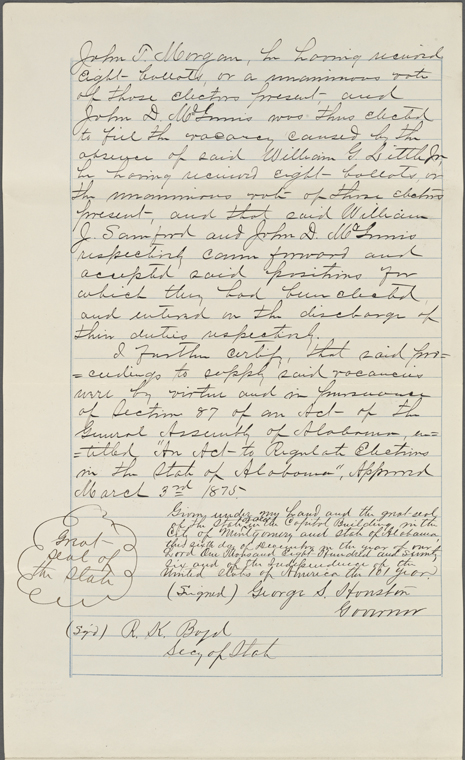 John T. Morgan, he having received
eight ballots, or a unanimous vote
of those electors present, and
John D. McInnis was thus elected
to fill the vacancy caused by the
absence of said William G. Little Jr,
he having received eight ballots, or
the unanimous vote of those electors
present, and that said William
J. Samford and John D. McInnis
respectively came forward and
accepted said positions for
which they had been elected,
and entered on the discharge of
their duties respectively.
I further certify, that said pro=
=ceedings to supply said vacancies
were by virtue and in pursuance
of Section 87 of an Act of the
General Assembly of Alabama, en=
=titled "An Act to Regulate Elections
in the State of Alabama", Approved
March 3rd 1875
Given under my hand and the great seal
of the State, at the Capitol Building, in the
City of Montgomery and State of Alabama,
this sixth day of December in the year of our
Lord One Thousand Eight Hundred and Seventy
six and of the Independence of the
United States of America the 101 year.
Great
seal of
the State
(Signed) George S. Houston
Governor
(Sgd) R. K. Boyd
Secy of State